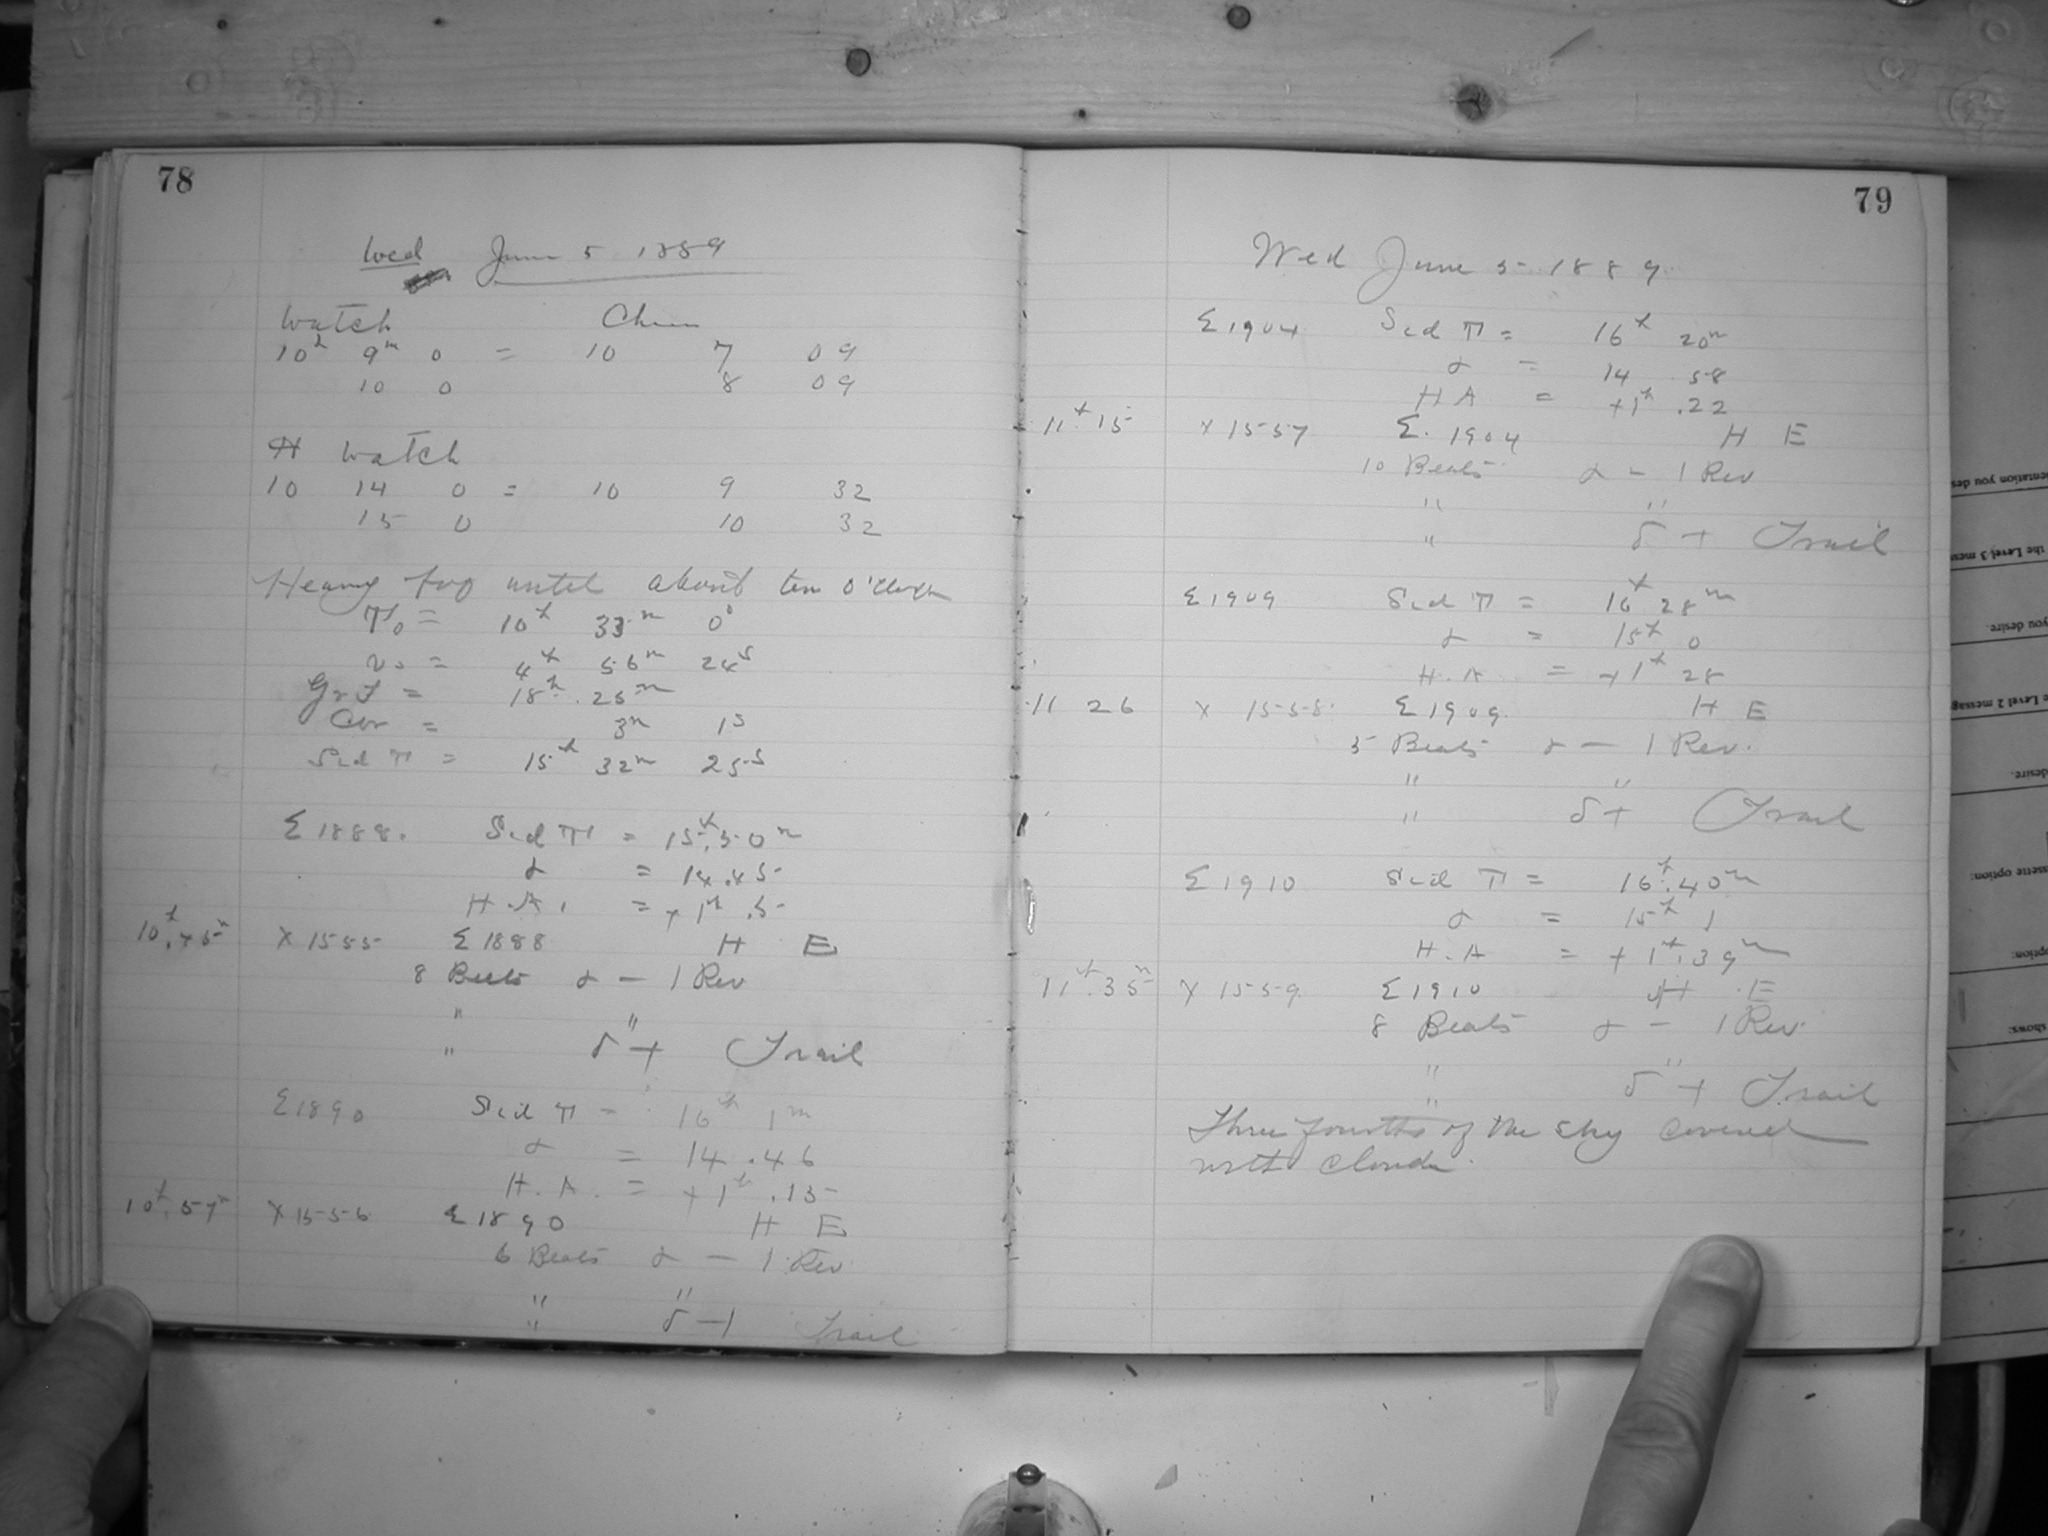 78
Wed June 5 1889
Watch Chron
10h 9m 0 = 10 7 09
10 0 8 09
H Watch
10 14 0 = 10 9 32
15 0 10 32
Heavy fog until about ten o'clock
T0 = 10h 33m 0s
= 4h 56m 24s
Gr T = 18h. 25m
Cor = 3m 1s
Sid T = 15h 32m 25s
Σ 1888. Sid T = 15h.50m
α = 14.45
H.A. = +1h.5
10h.45m X 1555 Σ 1888 H E
8 Beats α – 1 Rev
" "
" δ + Trail
Σ 1890 Sid T = 16h 1m
α = 14.46
H.A. = +1h.15
10h.57m X 1556 Σ 1890 H E
6 Beats α – 1 Rev
" "
" δ + Trail
79
Wed June 5 1889
Σ 1904 Sid T = 16h 20m
α = 14 58
H A = +1h.22
11h 15 X 1557 Σ. 1904 H E
10 Beats α – 1 Rev
" "
" δ + Trail
Σ 1909 Sid T = 16h 28m
α = 15h 0
H.A = +1h 28
11 26 X 1558 Σ 1909 H E
5 Beats α – 1 Rev.
" "
" δ + Trail
Σ 1910 Sid T = 16h.40m
α = 15h 1
H.A = +1h.39m
11h.35m X 1559 Σ 1910 H E
8 Beats α – 1 Rev.
" "
" δ + Trail
Three fourths of the sky covered
with clouds.